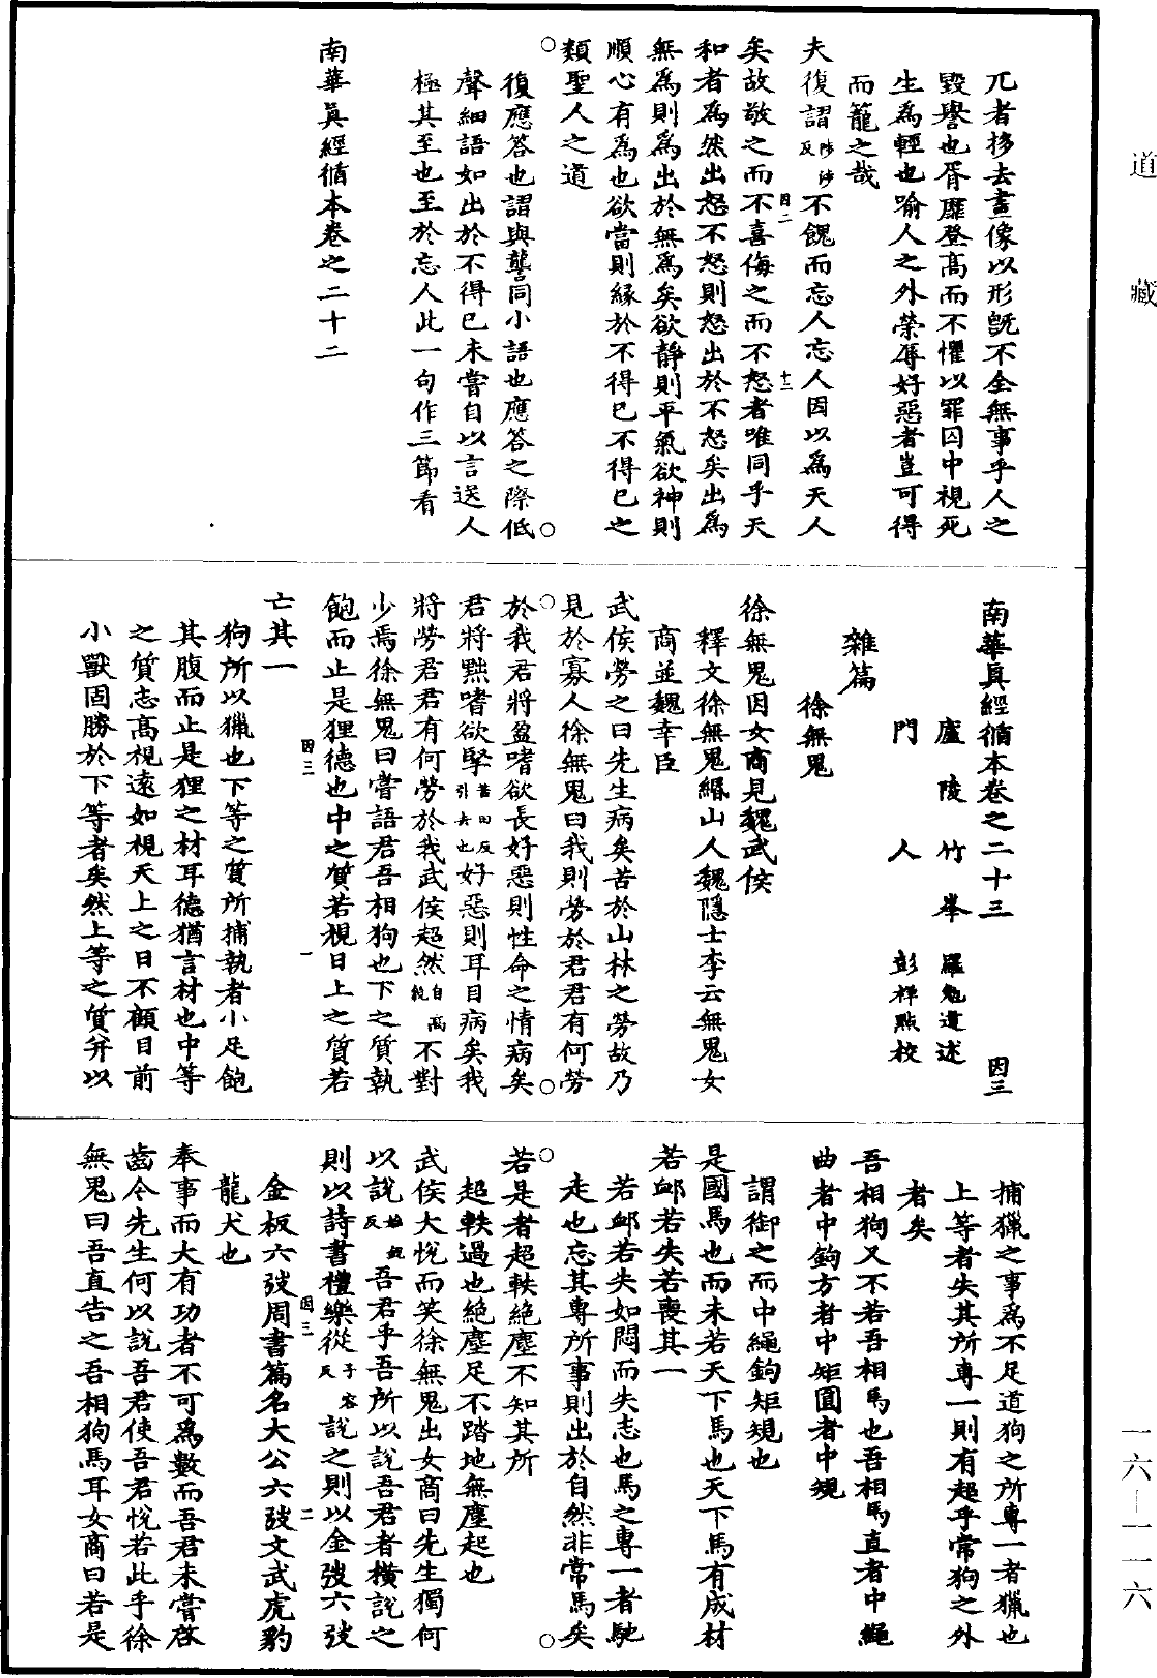 道藏
兀者拸去畫像以形旣不全無事乎人之
毀譽也胥靡登高而不懼以罪囚中視死
生爲輕也喻人之外榮辱好惡者豈可得
而籠之哉
夫復謵反涉不餽而忘人忘人因以爲天人
矣故敬之而不喜侮之而不怒者唯同乎天
因二 十二
和者爲然出怒不怒則怒出於不怒矣出爲
無爲則爲出於無爲矣欲靜則平氣欲神則
順心有爲也欲當則緣於不得已不得已之
類聖人之道
復應答也謵與讋同小語也應答之際低
聲細語如出於不得已未嘗自以言送人
極其至也至於忘人此一句作三節看
南華眞經循本卷之二十二
南華眞經循本卷之二十三 因三
廬陵竹峯羅勉道述
門人彭祥點校
雜篇
徐無鬼
徐無鬼因女商見魏武侯
釋文徐無鬼緡山人魏隱士李云無鬼女
商並魏幸臣
武侯勞之曰先生病矣苦於山林之勞故乃
見於寡人徐無鬼曰我則勞於君君有何勞
於我君將盈嗜欲長好惡則性命之情病矣
君將黜嗜欲掔苦田反引去也好惡則耳目病矣我
將勞君君有何勞於我武侯超然自高貌不對
少焉徐無鬼曰嘗語君吾相狗也下之質執
飽而止是狸德也中之質若視日上之質若
因三 一
亡其一
狗所以獵也下等之質所捕執者小足飽
其腹而止是狸之材耳德猶言材也中等
之質志高視遠如視天上之日不顧目前
小獸固勝於下等者矣然上等之質并以
捕獵之事爲不足道狗之所專一者獵也
上等者失其所專一則有超乎常狗之外
者矣
吾相狗又不若吾相馬也吾相馬直者中繩
曲者中鉤方者中矩圓者中規
謂御之而中繩鉤矩規也
是國馬也而未若天下馬也天下馬有成材
若卹若失若喪其一
若卹若失如悶而失志也馬之專一者馳
走也忘其專所事則出於自然非常馬矣
若是者超軼絕塵不知其所
超軼過也絕塵足不踏地無塵起也
武侯大悅而笑徐無鬼出女商曰先生獨何
以說始銳反吾君乎吾所以說吾君者橫說之
則以詩書禮樂從子容反說之則以金弢六弢
因三 二
金板六弢周書篇名大公六弢文武虎豹
龍犬也
奉事而大有功者不可爲數而吾君未嘗啓
齒今先生何以說吾君使吾君悅若此乎徐
無鬼曰吾直告之吾相狗馬耳女商曰若是
一六—一一六